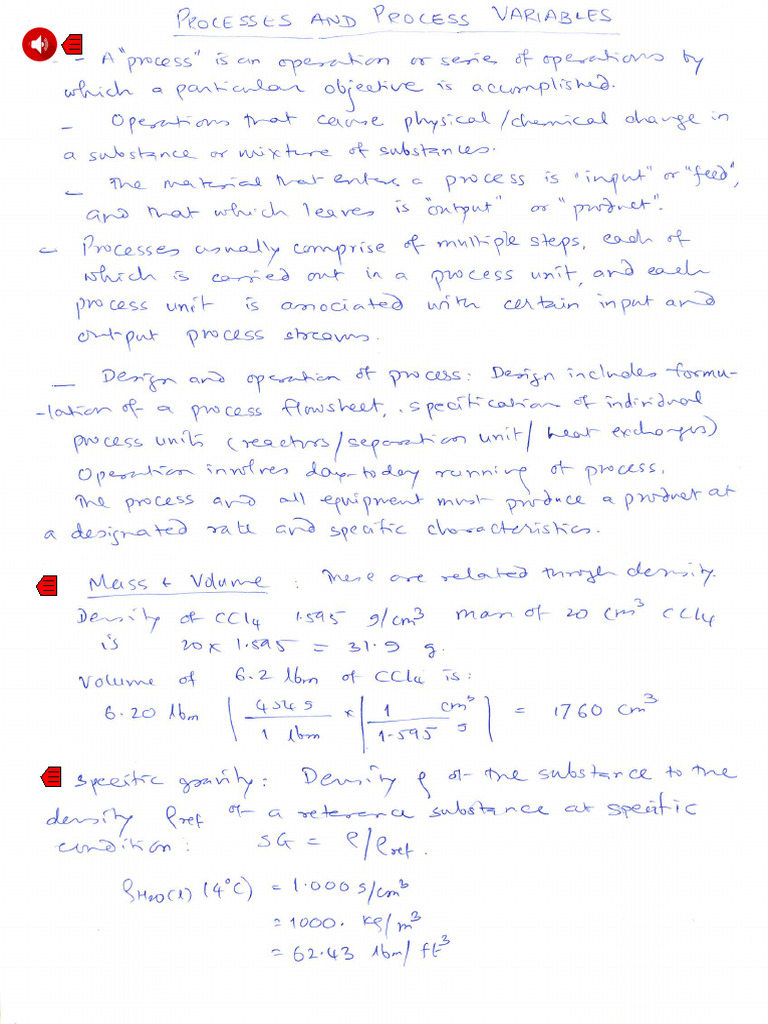 PROCESSES AND PROCESS VARIABLES
- A "process" is an operation or series of operations by
which a particular objective is accomplished.
- Operations that cause physical/chemical change in
a substance or mixture of substances.
- The material that enters a process is "input" or "feed",
and that which leaves is "output" or "product".
- Processes usually comprise of multiple steps, each of
which is carried out in a process unit, and each
process unit is associated with certain input and
output process streams.
- Design and operation of process: Design includes formu-
-lation of a process flowsheet, specification of individual
process units (reactors/separation unit/heat exchangers)
Operation involves day-today running of process.
The process and all equipment must produce a product at
a designated rate and specific characteristics.
Mass & Volume : These are related through density.
Density of CCl4 1.595 g/cm³ mass of 20 cm³ CCl4
is 20 x 1.595 = 31.9 g.
Volume of 6.2 lbm of CCl4 is:
6.20 lbm | 454 g / 1 lbm x | 1 cm³ / 1.595 g | = 1760 cm³
Specific gravity: Density ρ of the substance to the
density ρref of a reference substance at specific
condition: SG = ρ/ρref.
ρH2O(l) (4°C) = 1.000 g/cm³
= 1000. kg/m³
= 62.43 lbm/ft³